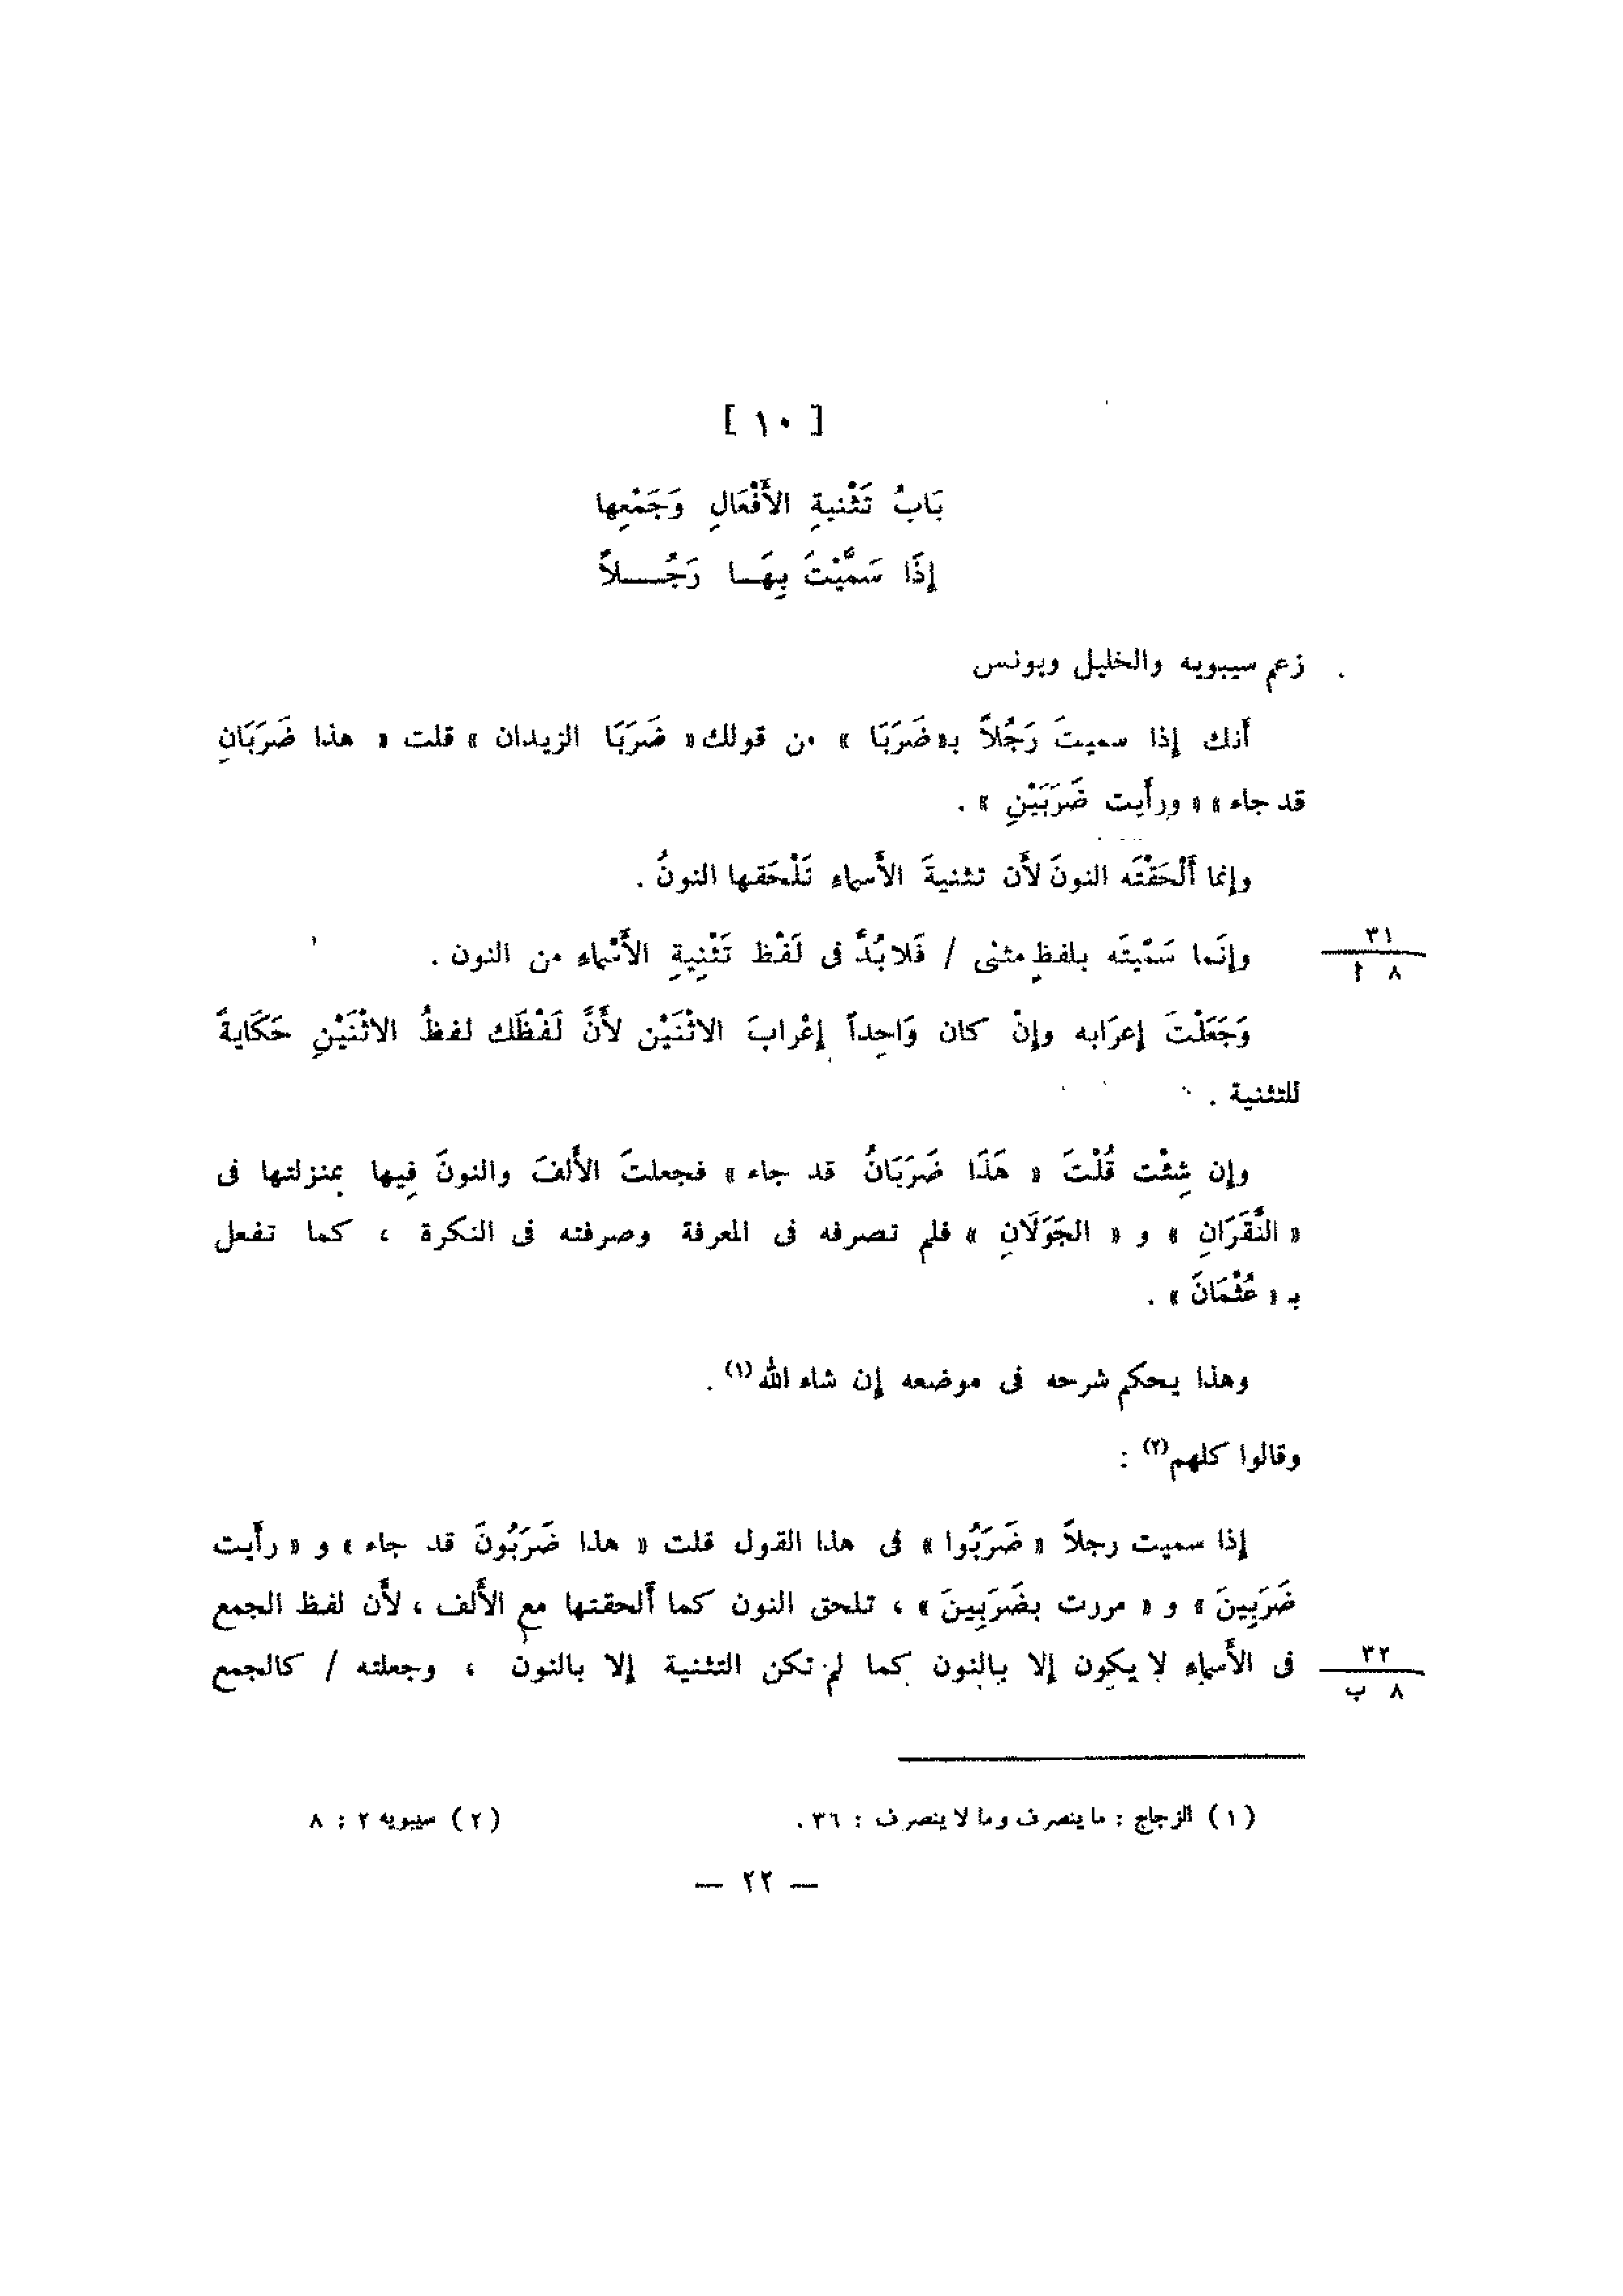 [ ١٠ ]
بَابُ تَثْنيةِ الأَفْعَالِ وَجَمْعِها
إِذَا سَمَّيْتَ بِهَا رَجُلاً
زعم سيبويه والخليل ويونس
أَنك إِذا سميتَ رَجُلاً بـ«ضَرَبَا» من قولك «ضَرَبَا الزيدان» قلت «هذا ضَرَبَانِ
قد جاء» «ورأَيت ضَرَبَيْنِ» .
وإِنما أَلْحَقْتَه النونَ لأَن تثنيةَ الأَسماءِ تَلْحَقها النونُ .
وإِنَما سَمّيتَه بلفظٍ مثنى / فَلا بُدَّ فى لَفْظ تَثْنِيةِ الأَسْماءِ من النون .
٣١
٨ أ
وَجَعَلْتَ إِعرَابه وإِنْ كان وَاحِداً إِعْرابَ الاثْنَيْن لأَنَّ لَفْظَك لفظُ الاثْنَيْنِ حَكَايةً
للتثنية .
وإِن شِئْت قُلْتَ «هَذَا ضَرَبَانُ قد جاء» فجعلتَ الأَلفَ والنونَ فِيها بمنزلتها فى
«النَّقَرَانِ» و «الجَوَلَانِ» فلم تصرفه فى المعرفة وصرفته فى النكرة ، كما تفعل
بـ «عُثْمَانَ» .
وهذا يحكم شرحه فى موضعه إِن شاء الله(١) .
وقالوا كلهم(٢) :
إِذا سميت رجلاً «ضَرَبُوا» فى هذا القول قلت «هذا ضَرَبُونَ قد جاء» و «رأَيت
ضَرَبِينَ» و «مررت بضَرَبِينَ» ، تلحق النون كما أَلحقتها مع الأَلف ، لأَن لفظ الجمع
فى الأَسماءِ لا يكون إِلا بالنون كما لم تكن التثنية إِلا بالنون ، وجعلته / كالجمع
٣٢
٨ ب
(١) الزجاج : ما ينصرف وما لا ينصرف : ٣٦ .
(٢) سيبويه ٢ : ٨
— ٢٢ —